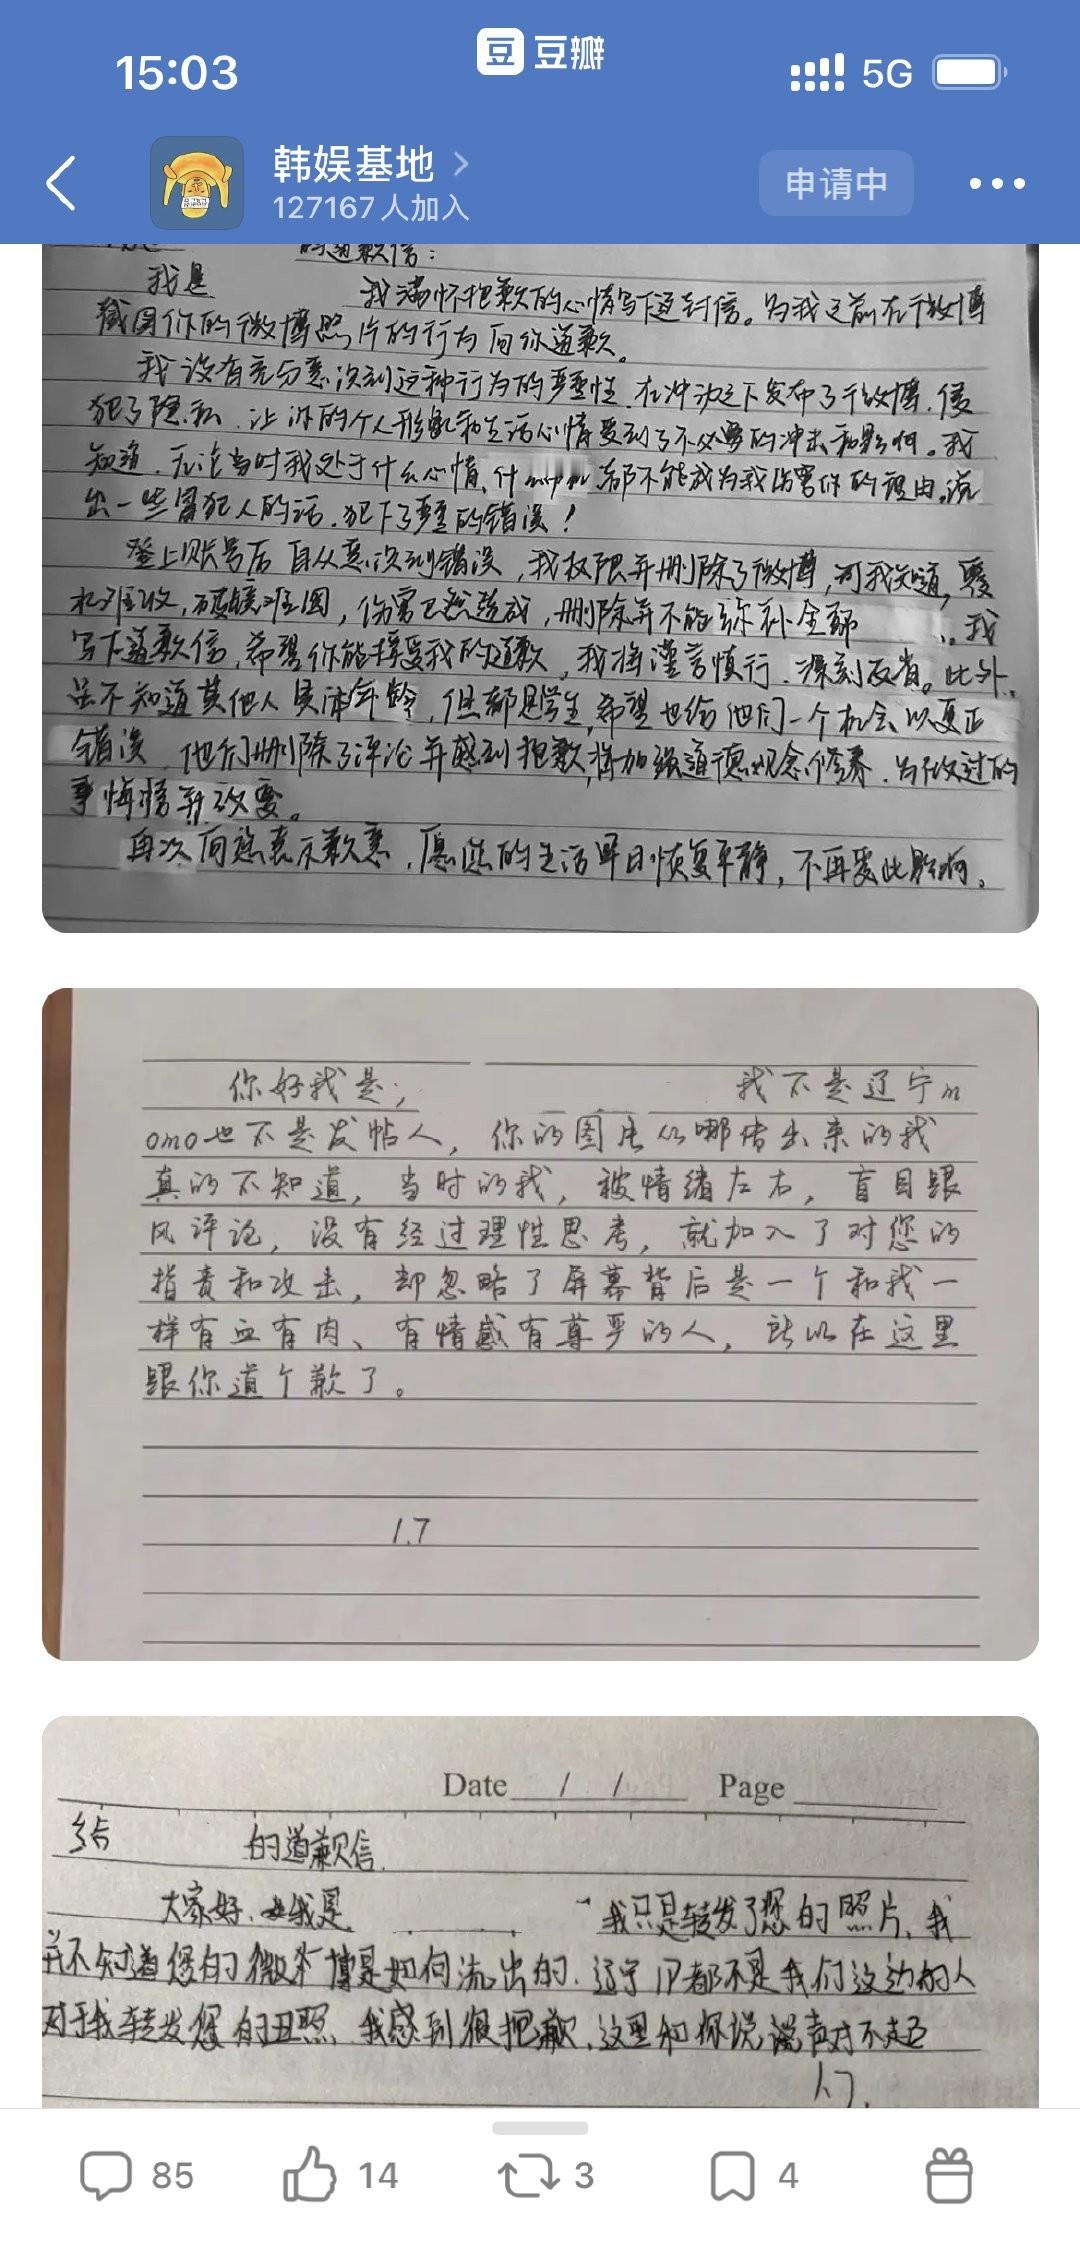 15:03
豆 豆瓣
5G
韩娱基地
127167人加入
申请中
的道歉信：
我是 我满怀抱歉的心情写下这封信。为我之前在微博
截图你的微博照片的行为向你道歉。
我没有充分意识到这种行为的严重性，在冲动之下发布了微博，侵
犯了隐私，让你的个人形象和生活心情受到了不必要的冲击和影响。我
知道，无论当时我处于什么心情、什 都不能成为我伤害你的理由，说
出一些冒犯人的话，犯下了严重的错误！
登上账号后 自从意识到错误，我权限并删除了微博，可我知道，覆
水难收，破镜难圆，伤害已然造成，删除并不能弥补全部 。我
写下道歉信，希望你能接受我的道歉，我将谨言慎行、深刻反省。此外，
虽不知道其他人具体年龄，但都是学生，希望也给他们一个机会以更正
错误，他们删除了评论并感到抱歉，将加强道德观念修养，为做过的
事悔悟并改变。
再次向您表示歉意，愿您的生活早日恢复平静，不再受此影响。
你好我是； 我不是辽宁m
omo也不是发帖人，你的图片从哪传出来的我
真的不知道，当时的我，被情绪左右，盲目跟
风评论，没有经过理性思考，就加入了对您的
指责和攻击，却忽略了屏幕背后是一个和我一
样有血有肉、有情感有尊严的人，所以在这里
跟你道个歉了。
1.7
Date / / Page
给 的道歉信
大家好、我是 我只是转发了您的照片，我
并不知道您的微博是如何流出的，辽宁IP都不是我们这边的人
对于我转发您的丑照，我感到很抱歉，这里和你说声对不起
1.7.
85
14
3
4